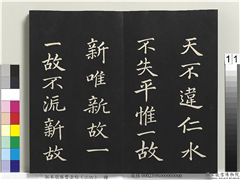 天不違仁水
不失平惟一故
新唯新故一
一故不流新故